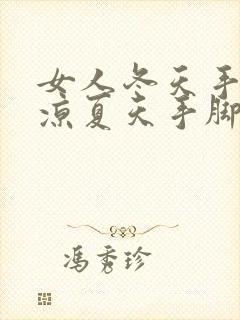 女人冬天手
凉夏天手脚
冯秀珍